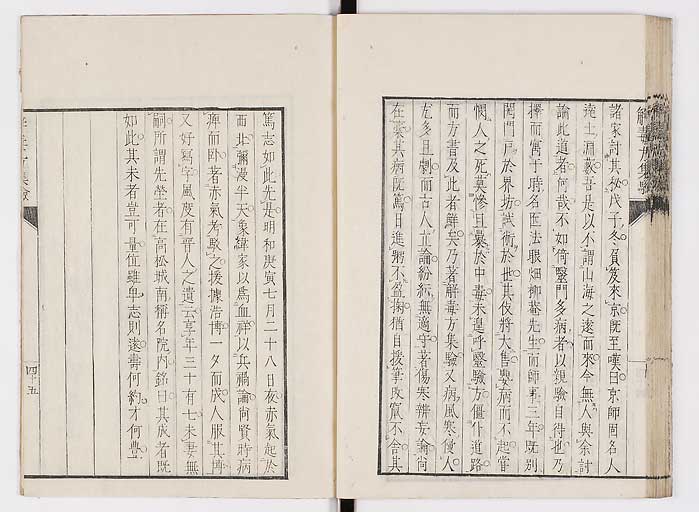 諸家討其秘戊子冬負笈來京既至嘆曰京師固名人
淹土淵藪吾是以不謂山海之遠而來今無人與余討
論此道者何哉不如倚毉門多病者以親驗自得也乃
擇而寓于時名醫法眼畑柳菴先生而師事三年既別
開門戶於界坊試術於世其伎將大售嬰病而不起嘗
憫人之死莫慘且暴於中毒未遑呼毉驗方僵仆道路
而方書及此者鮮矣乃著解毒方集驗又病風寒傷人
尤多且劇而古人立論紛紜無適守著傷寒辨妄論尚
在藁其病既篤日進粥不盈掬猶自援筆改竄不舍其
篤志如此先是明和庚寅七月二十八日夜赤氣起於
西北瀰漫半天象緯家以爲血祥以兵禍論向賢時病
痺而臥著赤氣考駮之援據浩博一夕而成人服其博
又好寫字風度有晉人之遺云享年三十有七未妻無
嗣所謂先塋者在高松城南稱名院内銘曰其成者既
如此其未者豈可量位雖卑志則遠壽何約才何豊
解毒方集驗
四十五